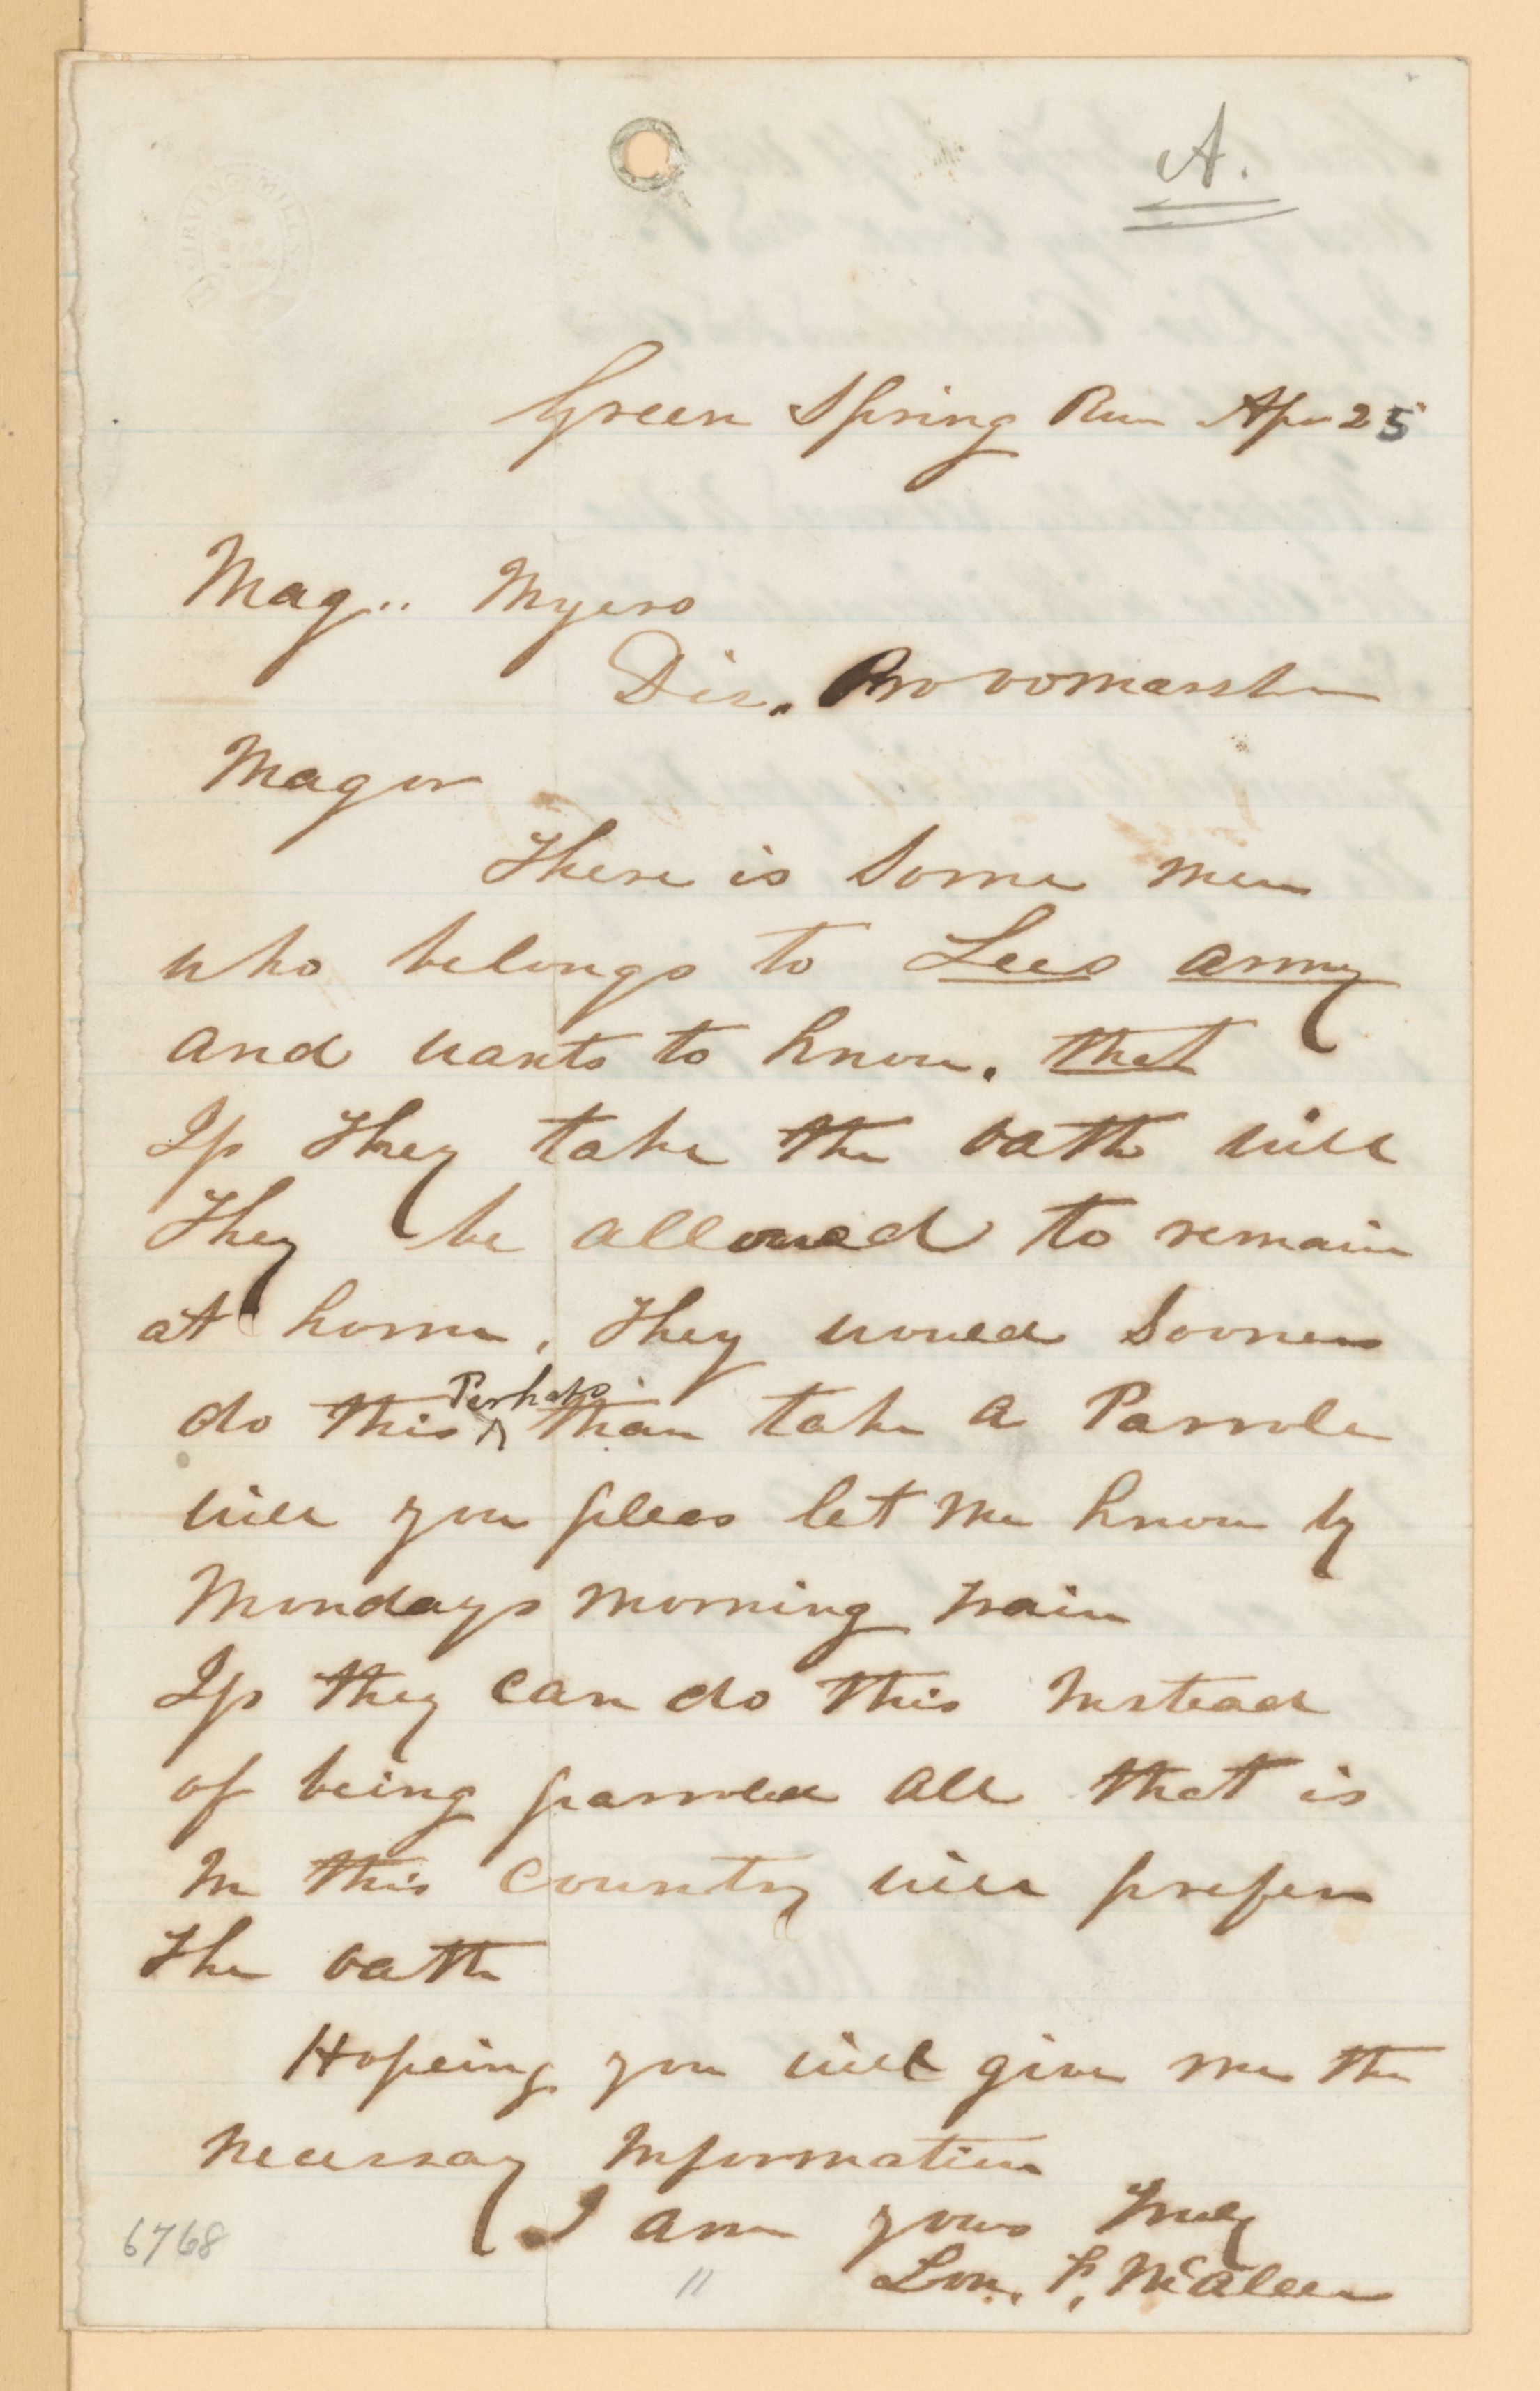 A.
Green Spring Run Apr 25
Mag.. Myers
Dis. Provomarshr
Magor
There is Some men
who belongs to Lees army
and wants to know. that
If they take the oath will
They be allowed to remain
at home, They would Sooner
do this Perhaps than take a Parrole
will you pleas let me know by
Mondays morning train
If they can do this Instead
of being parroled all that is
In this Country will prefer
the oath
Hopeing you will give me the
necessay Information
I am yours truly
Lon. F. McAleer
6768
11